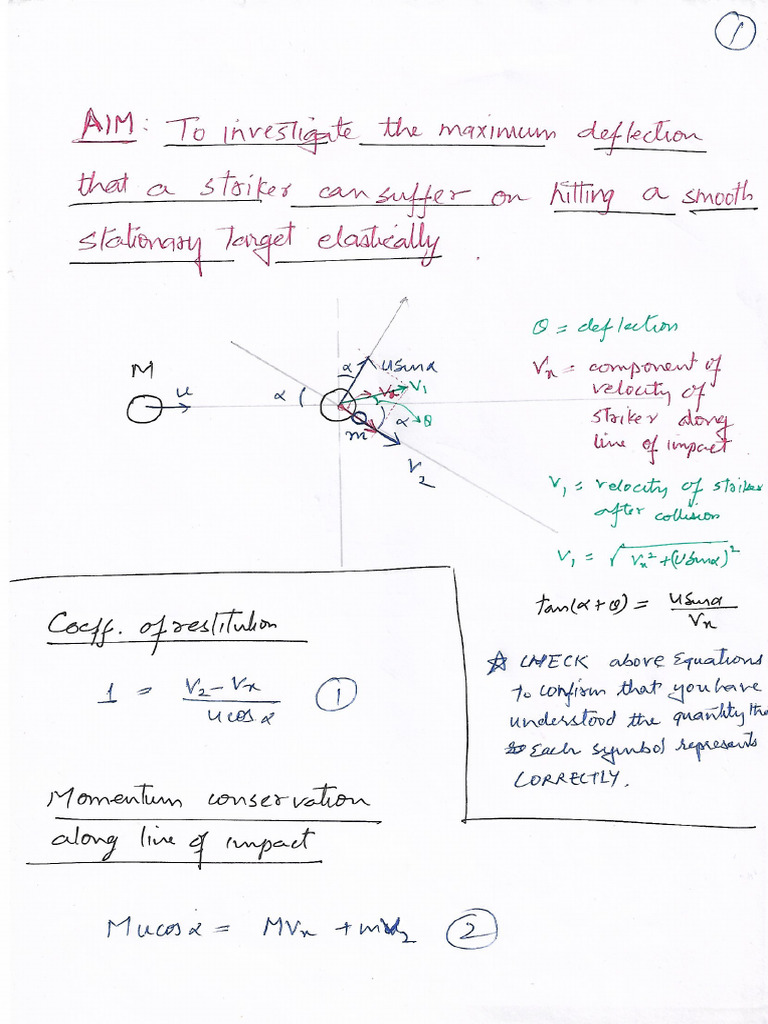 1
AIM: To investigate the maximum deflection
that a striker can suffer on hitting a smooth
stationary target elastically.
M
u
α
α
u sin α
Vx
V1
θ
α
m
V2
θ = deflection
Vx = component of
velocity of
striker along
line of impact
V1 = velocity of striker
after collision
V1 = √(Vx² + (U sin α)²)
tan(α+θ) = u sin α / Vx
☆ CHECK above Equations
to confirm that you have
understood the quantity
Each symbol represents
CORRECTLY.
Coeff. of restitution
1 = (V2 - Vx) / (u cos α) ①
Momentum conservation
along line of impact
M u cos α = M Vx + m V2 ②